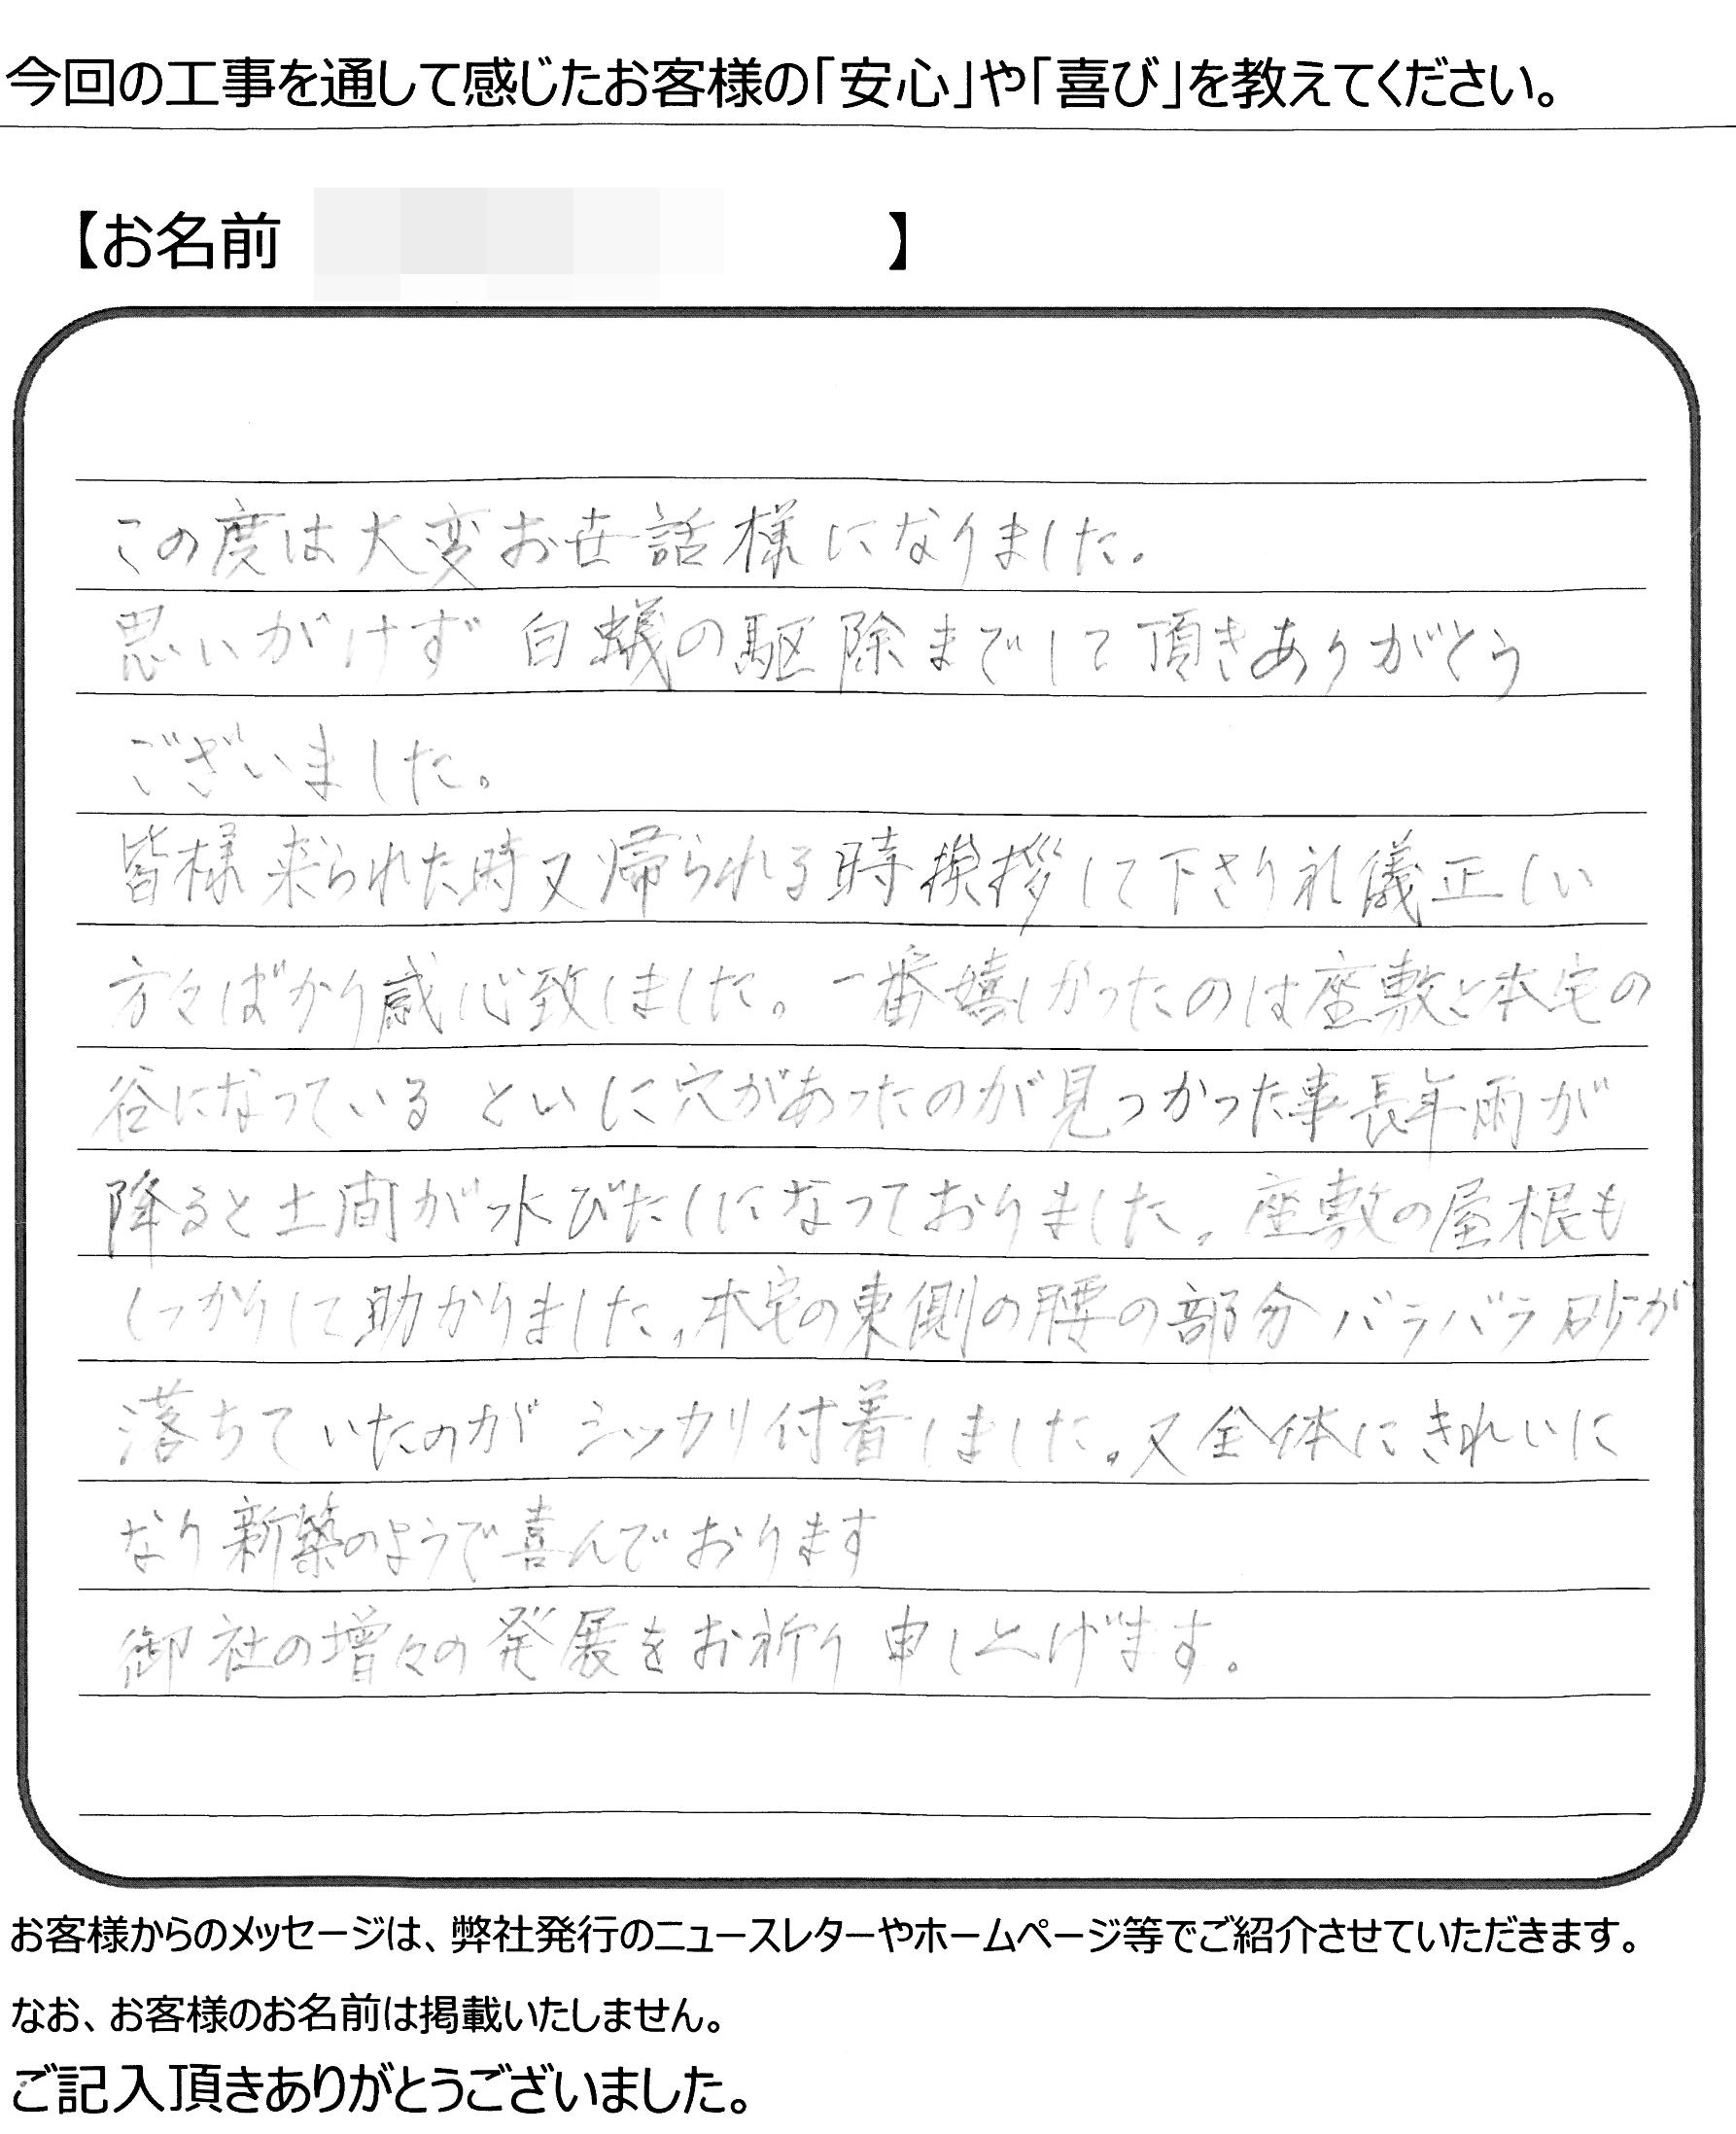 今回の工事を通して感じたお客様の「安心」や「喜び」を教えてください。
【お名前 】
この度は大変お世話様になりました。
思いがけず 白蟻の駆除までして頂きありがとう
ございました。
皆様来られた時又帰られる時挨拶して下さり礼儀正しい
方々ばかり感心致しました。一番嬉しかったのは座敷と本宅の
谷になっている といに穴があったのが見つかった事長年雨が
降ると土間が水びたしになっておりました。座敷の屋根も
しっかりして助かりました。本宅の東側の腰の部分バラバラ砂が
落ちていたのが シッカリ付着しました。又全体にきれいに
なり新築のようで喜んでおります
御社の増々の発展をお祈り申し上げます。
お客様からのメッセージは、弊社発行のニュースレターやホームページ等でご紹介させていただきます。
なお、お客様のお名前は掲載いたしません。
ご記入頂きありがとうございました。